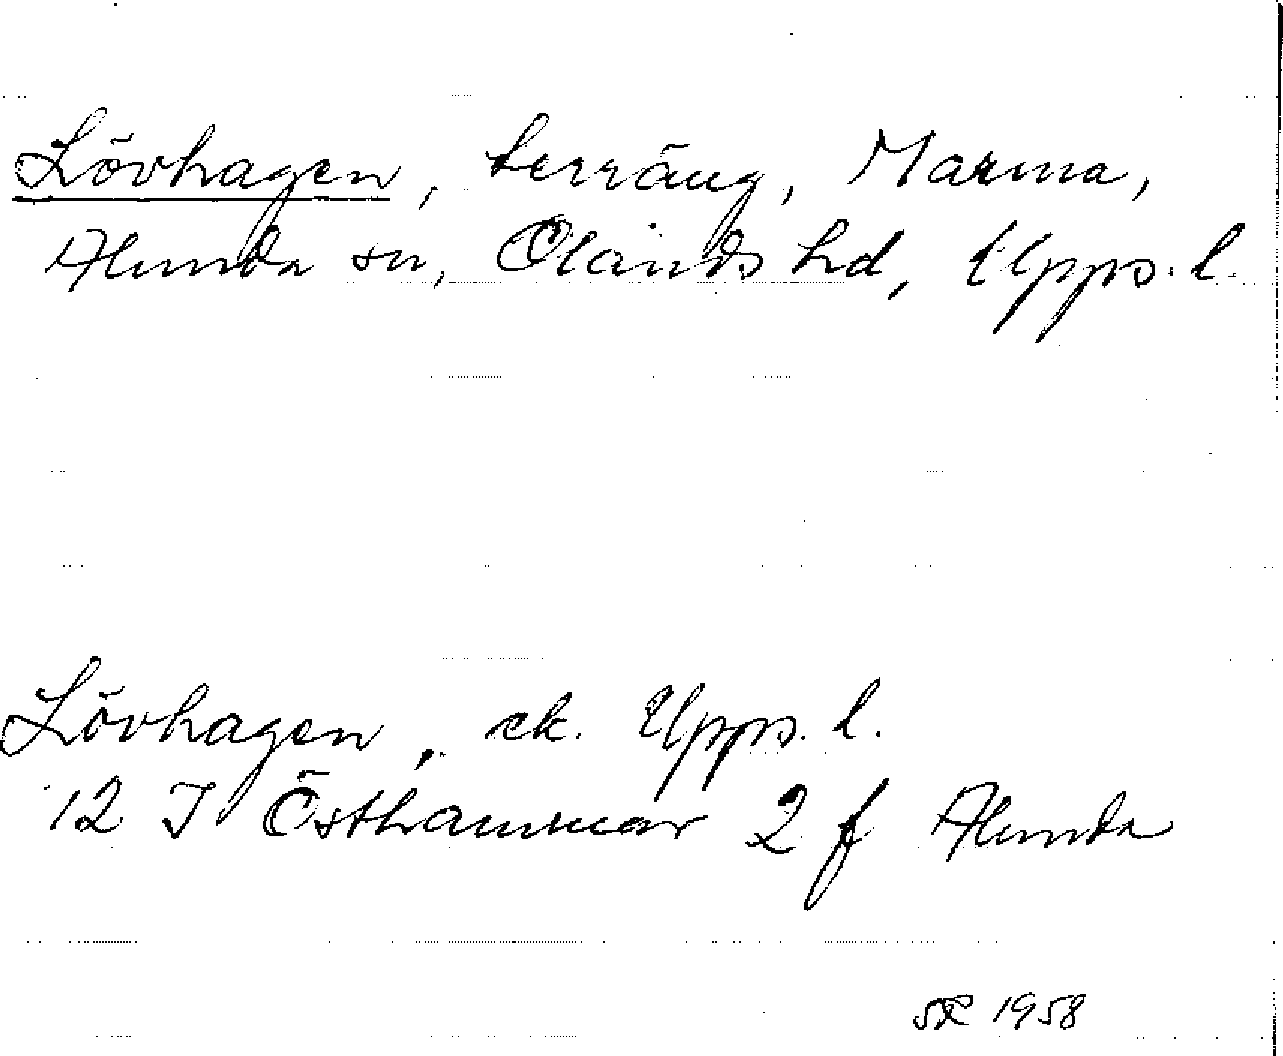 Lövhagen, terräng, Marma,
Alunda sn, Olands hd, Upps. l.
Lövhagen, ek. Upps. l.
12 I Östhammar 2 f Alunda
1958